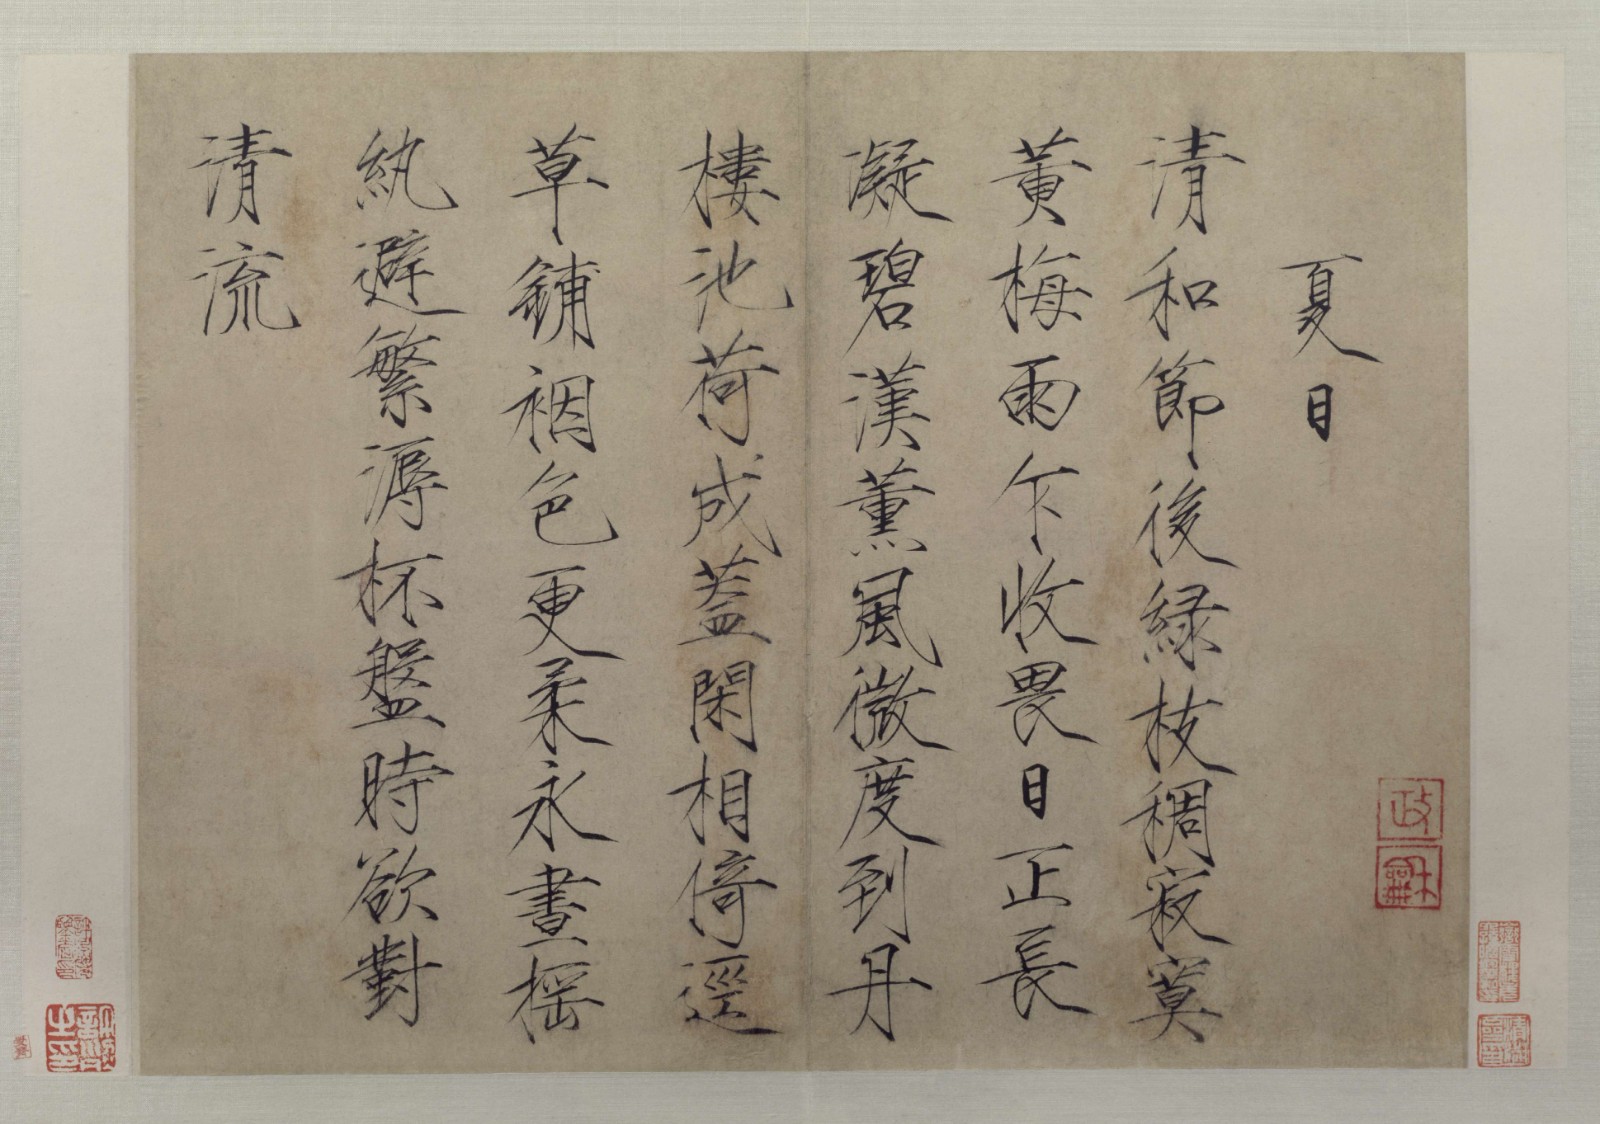 夏日
清和節後緑枝稠寂寞
黄梅雨乍收畏日正長
凝碧漢薫風微度到丹
樓池荷成蓋閑相倚逕
草鋪裀色更柔永晝揺
紈避繁溽杯盤時欲對
清流
政龢